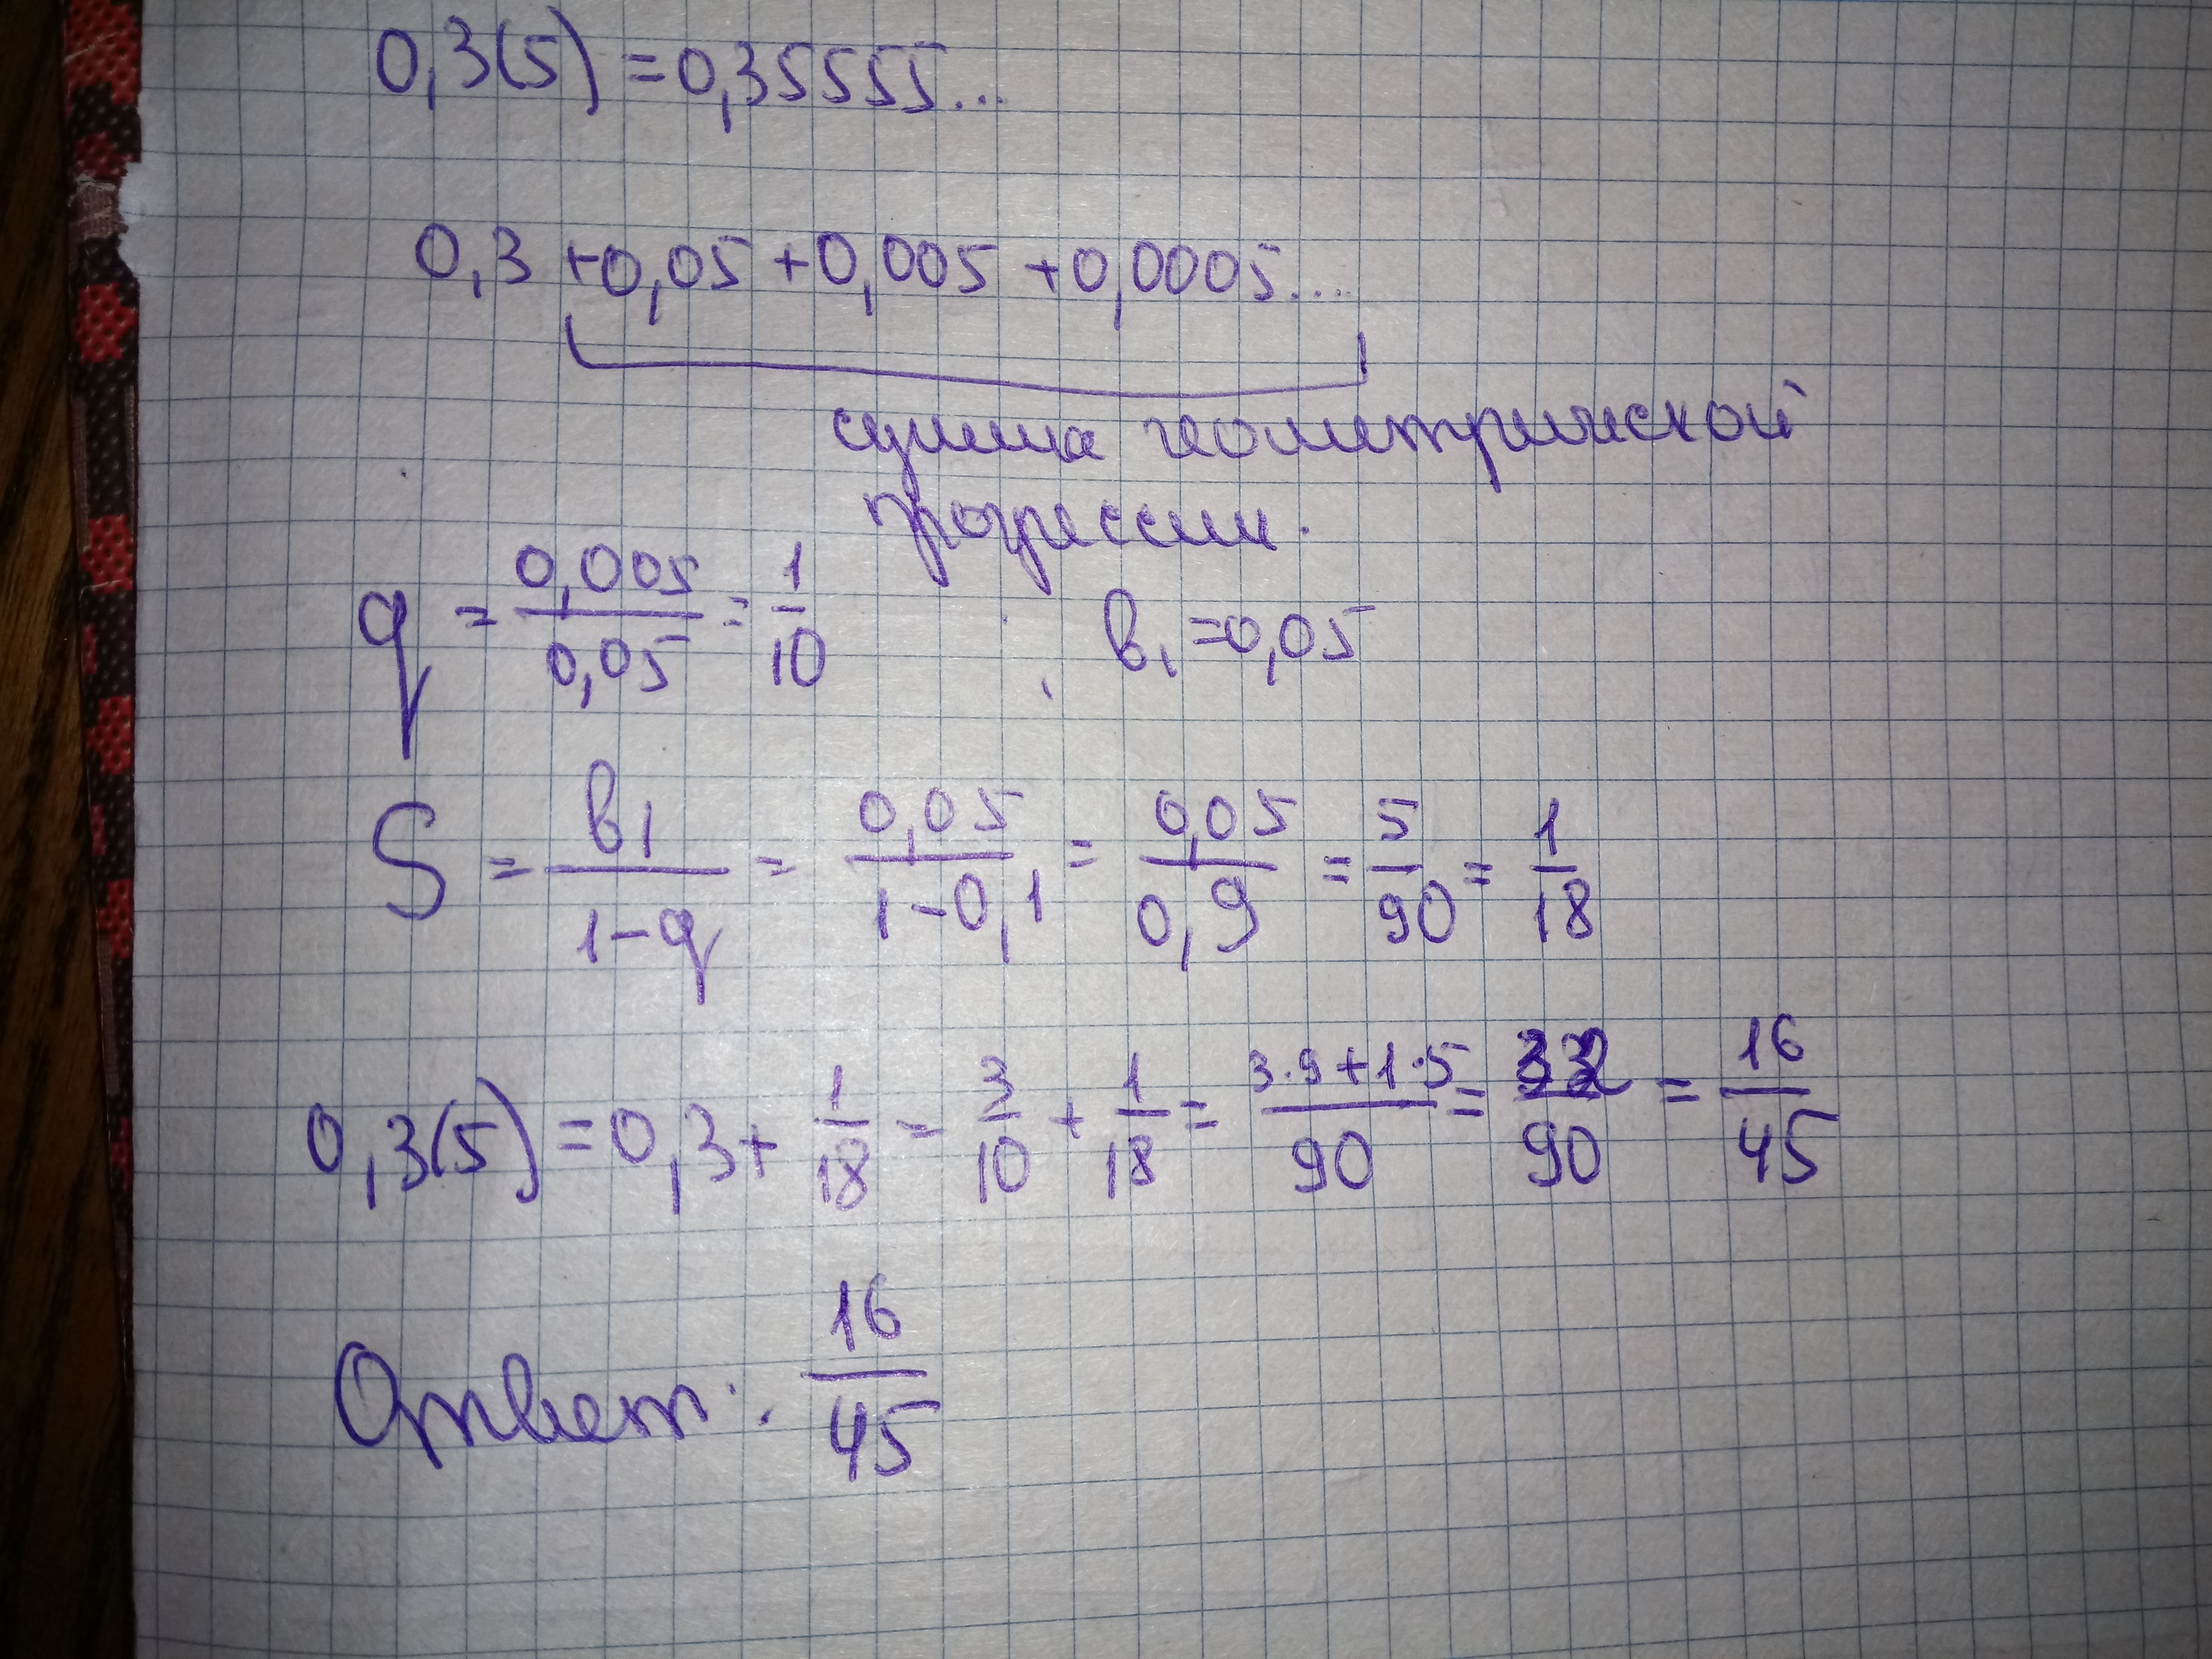 0,3(5) = 0,35555...
0,3 + 0,05 + 0,005 + 0,0005....
сумма геометрической
прогрессии.
q = 0,005/0,05 = 1/10 b₁ = 0,05
S = b₁/1-q = 0,05/1-0,1 = 0,05/0,9 = 5/90 = 1/18
0,3(5) = 0,3 + 1/18 = 3/10 + 1/18 = 3·9+1·5/90 = 32/90 = 16/45
Ответ: 16/45